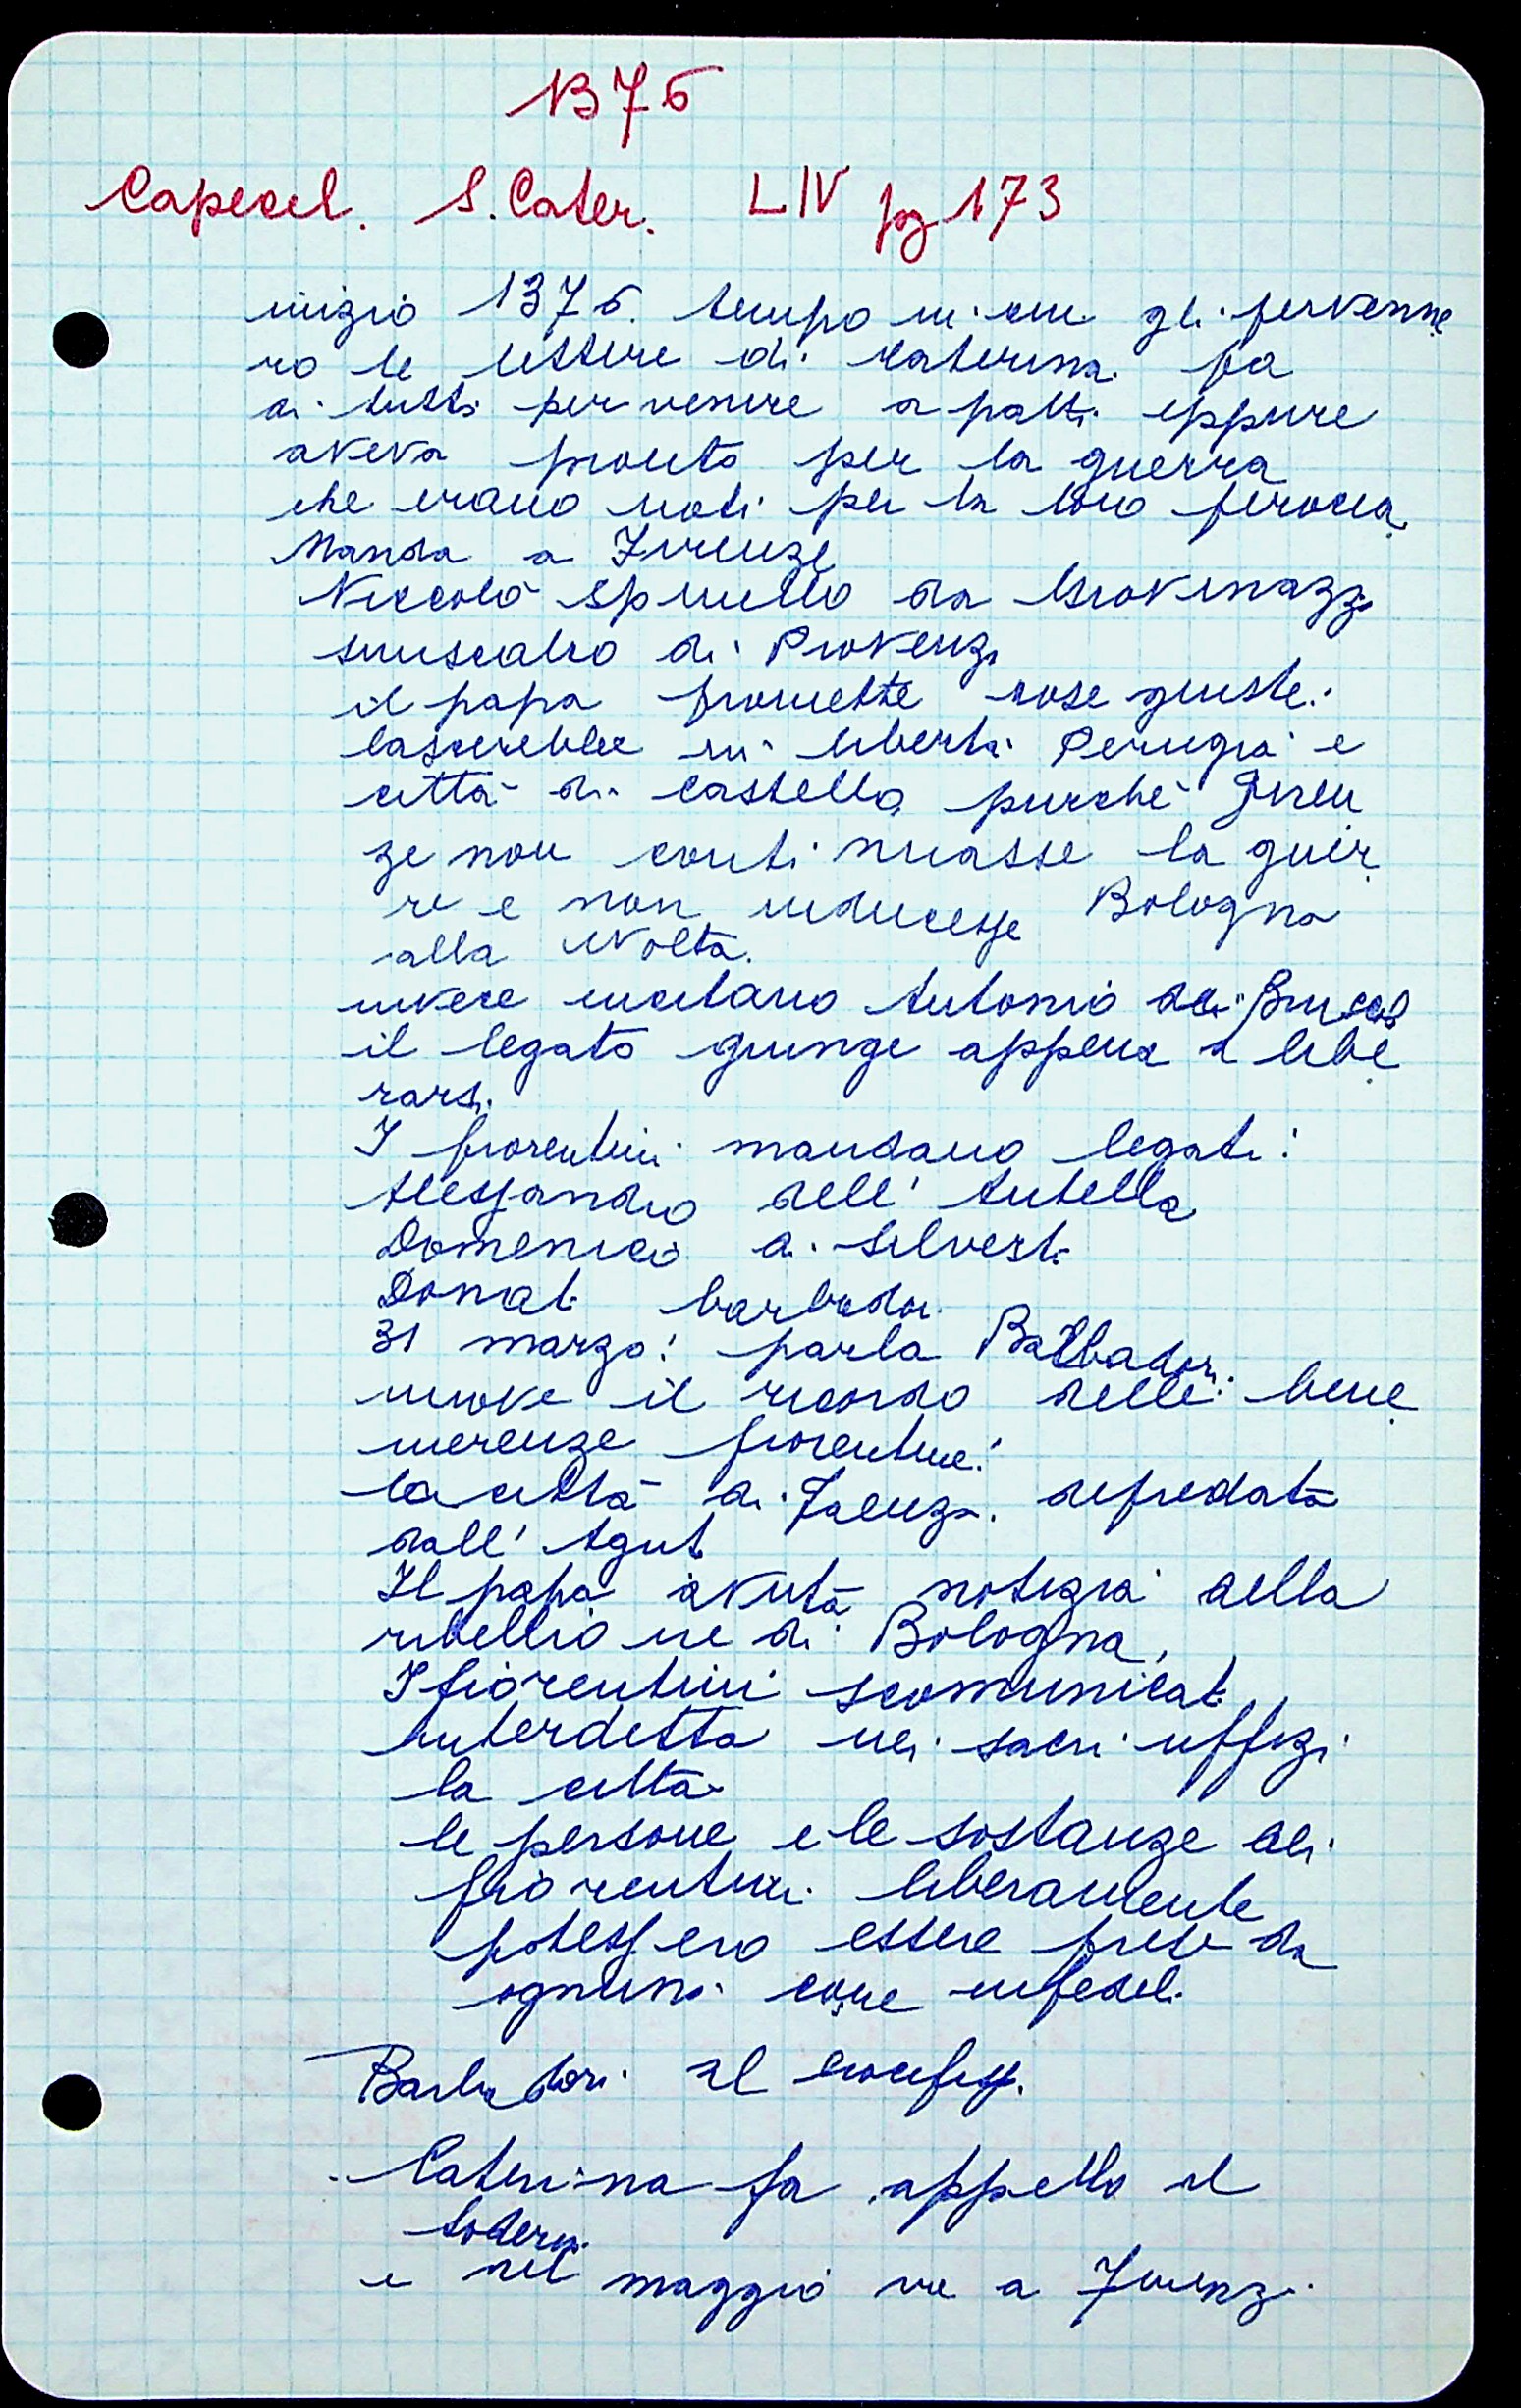 1376
Capecel. S. Cater. LIV pg 173
inizio 1376. tempo in cui gli pervenne
ro le lettere di Caterina. fa
di tutto per venire a patti eppure
aveva pronto per la guerra
che erano noti per la loro ferocia.
Manda a Firenze
Niccolò Spinello da Giovinazzo
siniscalco di Provenza
il papa promette cose giuste:
lascerebbe in libertà Perugia e
città di Castello, purchè Firen
ze non continuasse la guer
ra e non inducesse Bologna
alla rivolta.
invece incitano Antonio dei Bruscoli
il legato giunge appena a libe
rarsi.
I fiorentini mandano legati:
Alessandro dell' Antella
Domenico di Silvestri
Donati barbadori
31 marzo: parla Barbadori:
muove il ricordo delle bene
merenze fiorentine:
la città di Faenza depredata
dall' Agut
Il papa avuta notizia della
ribellione di Bologna,
I fiorentini scomunicati,
interdetta nei sacri uffizi
la città
le persone e le sostanze dei
fiorentini liberamente
potessero essere prese da
ognuno come infedeli.
Barbadori al crocefiss.
Caterina fa appello al
Soderini
e nel maggio va a Firenze